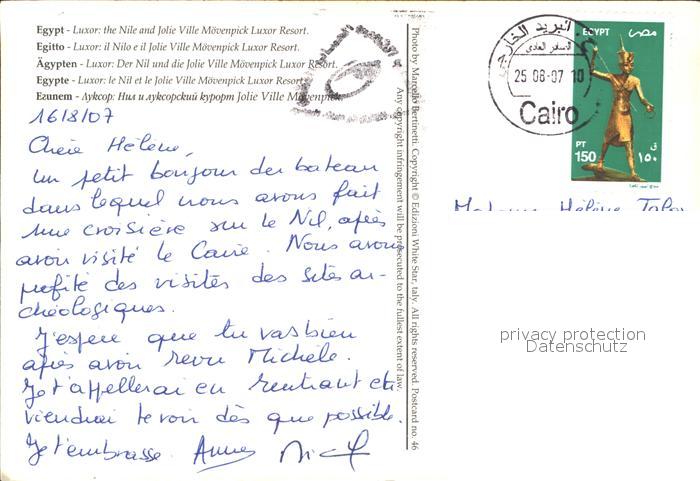 Egypt - Luxor: the Nile and Jolie Ville Mövenpick Luxor Resort.
Egitto - Luxor: il Nilo e il Jolie Ville Mövenpick Luxor Resort.
Ägypten - Luxor: Der Nil und die Jolie Ville Mövenpick Luxor Resort.
Egypte - Luxor: le Nil et le Jolie Ville Mövenpick Luxor Resort.
Езипет - Луксор: Нил и луксорский курорт Jolie Ville Mövenpick
16/8/07
Chère Hélène,
un petit bonjour du bateau
dans lequel nous avons fait
une croisière sur le Nil, après
avoir visité le Caire. Nous avons
profité des visites des sites ar-
chéologiques.
J'espère que tu vas bien
après avoir revu Michèle.
Je t'appellerai en rentrant et
viendrai te voir dès que possible.
Je t'embrasse. Annie
Photo by Marcello Bertinetti. Copyright © Edizioni White Star, Italy. All rights reserved. Postcard no. 46
Any copyright infringement will be prosecuted to the fullest extent of law.
البريد الخارجى
25 08-07 10
Cairo
EGYPT مصر
PT ق
150 ١٥٠
Madame Hélène
privacy protection
Datenschutz